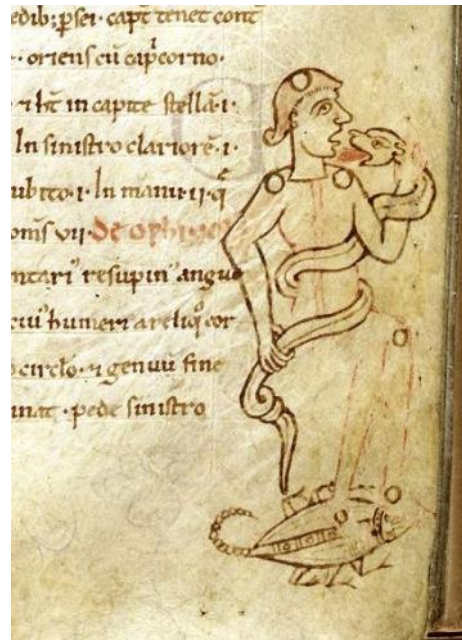 edib; psei· capt̄ tenet cont
· oriens cū cap̄corno·
⁊ ht̄ in capite stellā·i·
In sinistro clariorē·i·
ubito·i· In manu·ii·
om̄s vii· de ophiuco
ntari resupin᷒ angue
cui᷒ humeri a reliq̊ cor
circlo·⁊ genuū fine
nat· pede sinistro